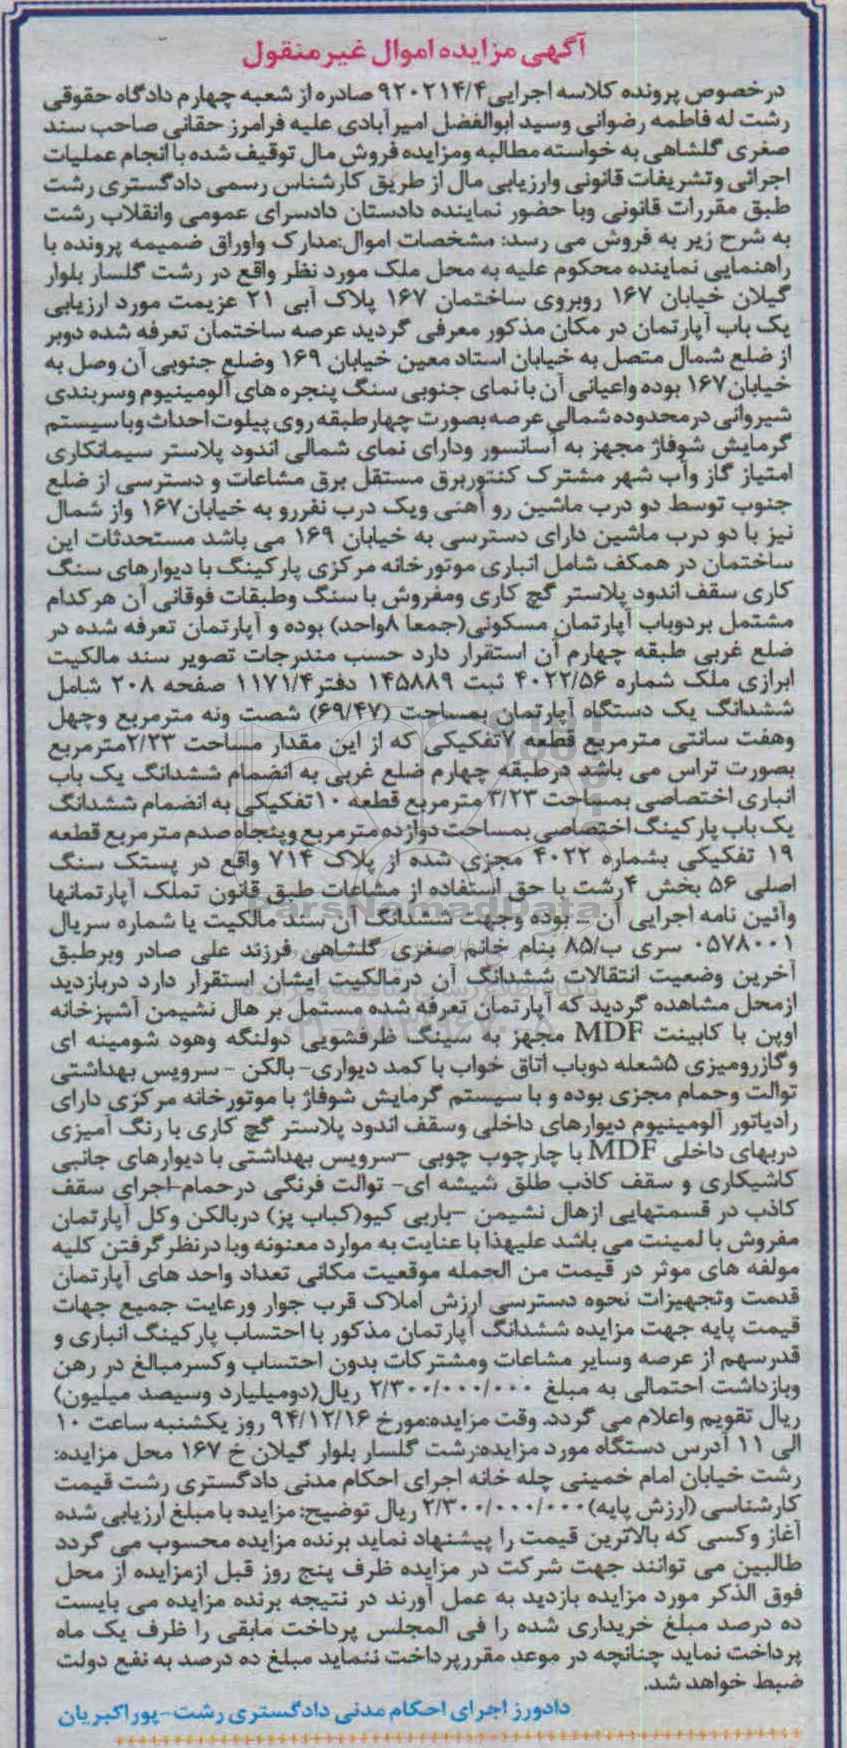 آگهی مزایده اموال غیر منقول
در خصوص پرونده کلاسه اجرایی ۹۲۰۲۱۴/۴ صادره از شعبه چهارم دادگاه حقوقی
رشت له فاطمه رضوانی وسید ابوالفضل امیرآبادی علیه فرامرز حقانی صاحب سند
صغری گلشاهی به خواسته مطالبه ومزایده فروش مال توقیف شده با انجام عملیات
اجرائی وتشریفات قانونی وارزیابی مال از طریق کارشناس رسمی دادگستری رشت
طبق مقررات قانونی وبا حضور نماینده دادستان دادسرای عمومی وانقلاب رشت
به شرح زیر به فروش می رسد: مشخصات اموال:مدارک واوراق ضمیمه پرونده با
راهنمایی نماینده محکوم علیه به محل ملک مورد نظر واقع در رشت گلسار بلوار
گیلان خیابان ۱۶۷ روبروی ساختمان ۱۶۷ پلاک آبی ۲۱ عزیمت مورد ارزیابی
یک باب آپارتمان در مکان مذکور معرفی گردید عرصه ساختمان تعرفه شده دوبر
از ضلع شمال متصل به خیابان استاد معین خیابان ۱۶۹ وضلع جنوبی آن وصل به
خیابان۱۶۷ بوده واعیانی آن با نمای جنوبی سنگ پنجره های آلومینیوم وسربندی
شیروانی درمحدوده شمالی عرصه بصورت چهارطبقه روی پیلوت احداث وبا سیستم
گرمایش شوفاژ مجهز به آسانسور ودارای نمای شمالی اندود پلاستر سیمانکاری
امتیاز گاز وآب شهر مشترک کنتوربرق مستقل برق مشاعات و دسترسی از ضلع
جنوب توسط دو درب ماشین رو آهنی ویک درب نفررو به خیابان۱۶۷ واز شمال
نیز با دو درب ماشین دارای دسترسی به خیابان ۱۶۹ می باشد مستحدثات این
ساختمان در همکف شامل انباری موتورخانه مرکزی پارکینگ با دیوارهای سنگ
کاری سقف اندود پلاستر گچ کاری ومفروش با سنگ وطبقات فوقانی آن هرکدام
مشتمل بردوباب آپارتمان مسکونی(جمعا ۸واحد) بوده و آپارتمان تعرفه شده در
ضلع غربی طبقه چهارم آن استقرار دارد حسب مندرجات تصویر سند مالکیت
ابرازی ملک شماره ۴۰۲۲/۵۶ ثبت ۱۴۵۸۸۹ دفتر۱۱۷۱/۴ صفحه ۲۰۸ شامل
ششدانگ یک دستگاه آپارتمان بمساحت (۶۹/۴۷) شصت ونه مترمربع وچهل
وهفت سانتی مترمربع قطعه ۷تفکیکی که از این مقدار مساحت ۲/۲۳مترمربع
بصورت تراس می باشد درطبقه چهارم ضلع غربی به انضمام ششدانگ یک باب
انباری اختصاصی بمساحت ۳/۲۳ مترمربع قطعه ۱۰تفکیکی به انضمام ششدانگ
یک باب پارکینگ اختصاصی بمساحت دوازده مترمربع وپنجاه صدم مترمربع قطعه
۱۹ تفکیکی بشماره ۴۰۲۲ مجزی شده از پلاک ۷۱۴ واقع در پستک سنگ
اصلی ۵۶ بخش ۴رشت با حق استفاده از مشاعات طبق قانون تملک آپارتمانها
وآئین نامه اجرایی آن - بوده وجهت ششدانگ آن سند مالکیت با شماره سریال
۰۵۷۸۰۰۱ سری ب/۸۵ بنام خانم صغری گلشاهی فرزند علی صادر وبرطبق
آخرین وضعیت انتقالات ششدانگ آن درمالکیت ایشان استقرار دارد دربازدید
ازمحل مشاهده گردید که آپارتمان تعرفه شده مستمل بر هال نشیمن آشپزخانه
اوپن با کابینت MDF مجهز به سینگ ظرفشویی دولنگه وهود شومینه ای
وگازرومیزی ۵شعله دوباب اتاق خواب با کمد دیواری- بالکن - سرویس بهداشتی
توالت وحمام مجزی بوده و با سیستم گرمایش شوفاژ با موتورخانه مرکزی دارای
رادیاتور آلومینیوم دیوارهای داخلی وسقف اندود پلاستر گچ کاری با رنگ آمیزی
دربهای داخلی MDF با چارچوب چوبی -سرویس بهداشتی با دیوارهای جانبی
کاشیکاری و سقف کاذب طلق شیشه ای- توالت فرنگی درحمام-اجرای سقف
کاذب در قسمتهایی ازهال نشیمن -باربی کیو(کباب پز) دربالکن وکل آپارتمان
مفروش با لمینت می باشد علیهذا با عنایت به موارد معنونه وبا درنظرگرفتن کلیه
مولفه های موثر در قیمت من الجمله موقعیت مکانی تعداد واحد های آپارتمان
قدمت وتجهیزات نحوه دسترسی ارزش املاک قرب جوار ورعایت جمیع جهات
قیمت پایه جهت مزایده ششدانگ آپارتمان مذکور با احتساب پارکینگ انباری و
قدرسهم از عرصه وسایر مشاعات ومشترکات بدون احتساب وکسرمبالغ در رهن
وبازداشت احتمالی به مبلغ ۲/۳۰۰/۰۰۰/۰۰۰ ریال(دومیلیارد وسیصد میلیون)
ریال تقویم واعلام می گردد. وقت مزایده:مورخ ۹۴/۱۲/۱۶ روز یکشنبه ساعت ۱۰
الی ۱۱ آدرس دستگاه مورد مزایده:رشت گلسار بلوار گیلان خ ۱۶۷ محل مزایده:
رشت خیابان امام خمینی چله خانه اجرای احکام مدنی دادگستری رشت قیمت
کارشناسی (ارزش پایه)۲/۳۰۰/۰۰۰/۰۰۰ ریال توضیح: مزایده با مبلغ ارزیابی شده
آغاز وکسی که بالاترین قیمت را پیشنهاد نماید برنده مزایده محسوب می گردد
طالبین می توانند جهت شرکت در مزایده ظرف پنج روز قبل ازمزایده از محل
فوق الذکر مورد مزایده بازدید به عمل آورند در نتیجه برنده مزایده می بایست
ده درصد مبلغ خریداری شده را فی المجلس پرداخت مابقی را ظرف یک ماه
پرداخت نماید چنانچه در موعد مقررپرداخت ننماید مبلغ ده درصد به نفع دولت
ضبط خواهد شد.
دادورز اجرای احکام مدنی دادگستری رشت-پوراکبریان
ParsNamadData